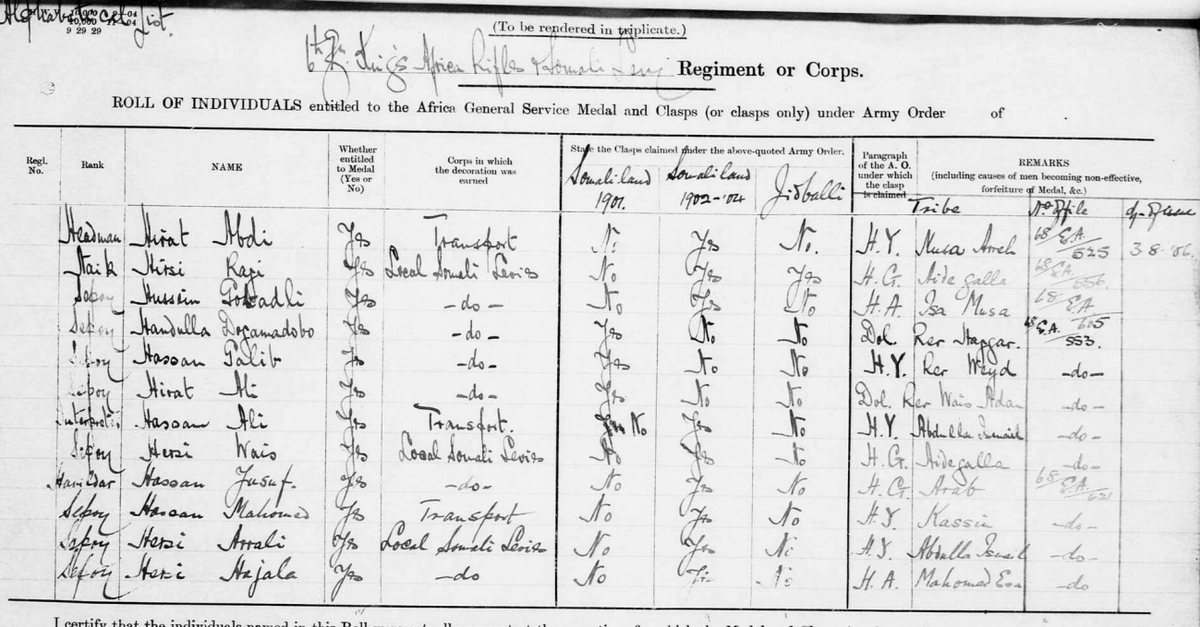 Alphabetical List.
9 29 29
(To be rendered in triplicate.)
6th Bn. King's Africa Rifles & Somali Levy Regiment or Corps.
ROLL OF INDIVIDUALS entitled to the Africa General Service Medal and Clasps (or clasps only) under Army Order of
Regl. No. Rank NAME Whether entitled to Medal (Yes or No) Corps in which the decoration was earned State the Clasps claimed under the above-quoted Army Order. Paragraph of the A. O. under which the clasp is claimed REMARKS (including causes of men becoming non-effective, forfeiture of Medal, &c.)
Somaliland 1901. Somaliland 1902-'04 Jidballi Tribe No. of file of Issue
Headman Hirat Abdi Yes Transport No Yes No. H.Y. Musa Arreh 68/E.A./525 3.8.'06.
Naik Hirsi Ragi Yes Local Somali Levies No Yes Yes H.G. Aidegalla 68/E.A./556.
Sepoy Hussein Yes -do- No Yes No H.A. Isa Musa 68/E.A.
Sepoy Handulla Dogamadobo Yes -do- Yes No No Dol. Rer Haggar. 68/E.A./553.
Sepoy Hassan Galib Yes -do- Yes No No H.Y. Rer Weyd -do-
Sepoy Hirat Ali Yes -do- Yes No No Dol. Rer Wais Adan -do-
Interpreter Hassan Ali Yes Transport. No Yes No H.Y. Abdulla Ismail -do-
Sepoy Hersi Wais Yes Local Somali Levies No Yes No H.G. Aidegalla -do-
Havildar Hassan Yusuf. Yes -do- No Yes No H.G. Arab 68/E.A./621
Sepoy Hassan Mahomed Yes Transport No Yes No H.Y. Kassim -do-
Sepoy Hersi Arrali Yes Local Somali Levies No Yes No H.Y. Abdulla Ismail -do-
Sepoy Hersi Hajala Yes -do No Yes No H.A. Mahomed Esa -do
I certify that the individuals named in this Roll